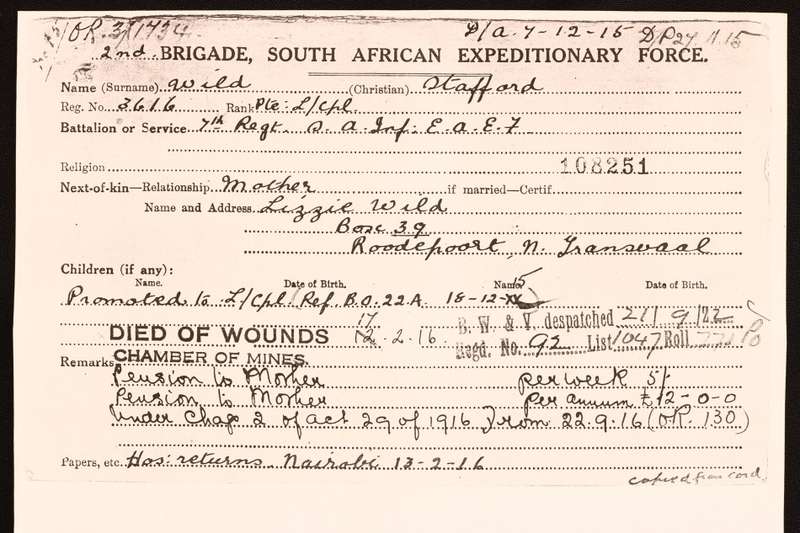 OR. 3/1734 D/a. 7-12-15 D/P 27.11.15
2nd. BRIGADE, SOUTH AFRICAN EXPEDITIONARY FORCE.
Name (Surname) Wild (Christian) Stafford
Reg. No. 3616 Rank Pte: L/Cpl.
Battalion or Service 7th Regt. S. A. Inf: E. A. E. F
Religion 108251
Next-of-kin—Relationship Mother if married—Certif.
Name and Address Lizzie Wild
Box 39
Roodepoort, N. Transvaal
Children (if any):
Name. Date of Birth. Name. Date of Birth.
Promoted to L/Cpl. Ref. B.O. 22A 18-12-15
DIED OF WOUNDS 12.2.16. 17 B. W. & V. despatched 21/9/22
Regd. No. 92 List 1047 Roll
Remarks CHAMBER OF MINES.
Pension to Mother per week 5/-
Pension to Mother per annum £12-0-0
Under Chap 2 of act 29 of 1916 from 22.9.16 (OR. 130)
Papers, etc. Hos: returns Nairobi 13-2-16
copied from card.